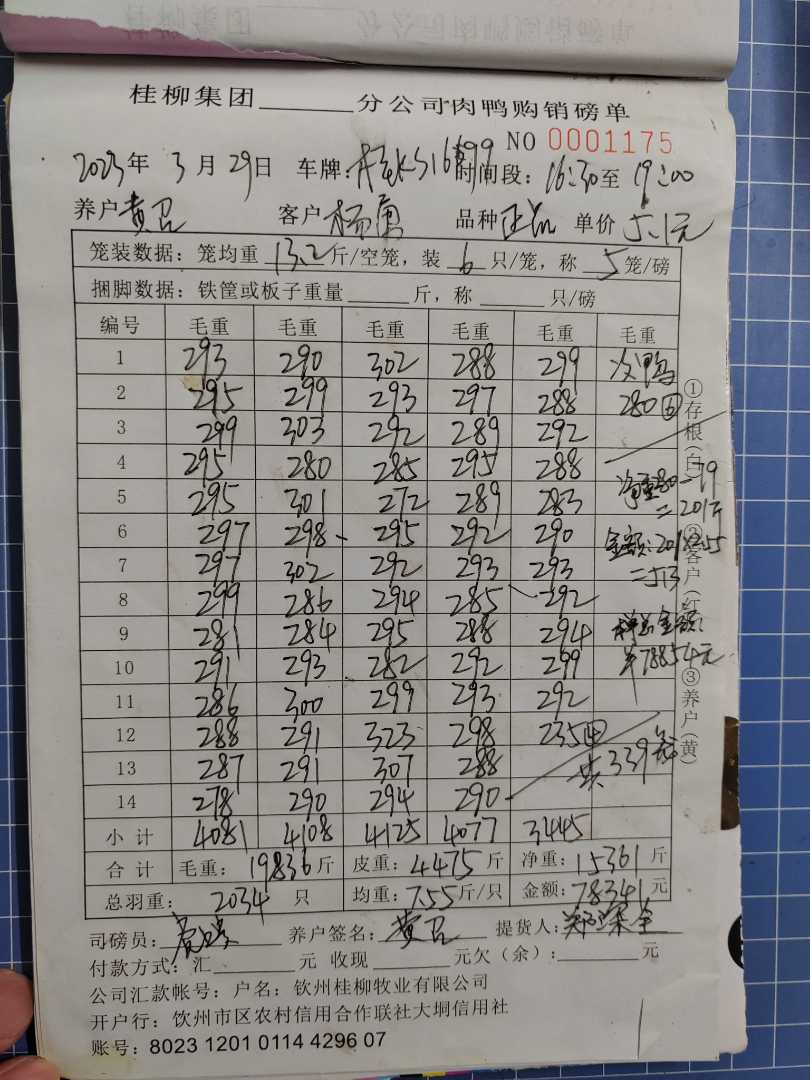 桂柳集团______分公司肉鸭购销磅单
NO 0001175
2023年 3月29日 车牌: 时间段: 16:30至 19:00
养户 黄 客户 杨 品种 正 单价 5.1元
笼装数据: 笼均重 13.2 斤/空笼, 装 6 只/笼, 称 5 笼/磅
捆脚数据: 铁筐或板子重量______斤, 称______只/磅
编号 毛重 毛重 毛重 毛重 毛重 毛重
1 293 290 302 288 299 次鸭
2 295 299 293 297 288 280⑥
3 299 303 292 289 292
4 295 280 285 295 288
5 295 301 272 289 283 净重280-79
=201斤
6 297 298 295 292 290 金额:201×2.55
7 297 302 292 293 293 =513
8 299 286 294 285 292
9 281 284 295 288 294 总金额:
10 291 293 282 292 299 ¥78854元
11 286 300 299 293 292
12 288 291 323 298 235④
13 287 291 307 288 共339笼
14 278 290 294 290
小计 4081 4108 4125 4077 3445
合计 毛重: 19836斤 皮重: 4475斤 净重: 15361斤
总羽重: 2034 只 均重: 7.55斤/只 金额: 78341元
司磅员: 养户签名: 黄 提货人: 郑
付款方式: 汇______元 收现______元欠(余):______元
公司汇款帐号: 户名: 钦州桂柳牧业有限公司
开户行: 饮州市区农村信用合作联社大垌信用社
账号: 8023 1201 0114 4296 07
①存根(白) ②客户(红) ③养户(黄)